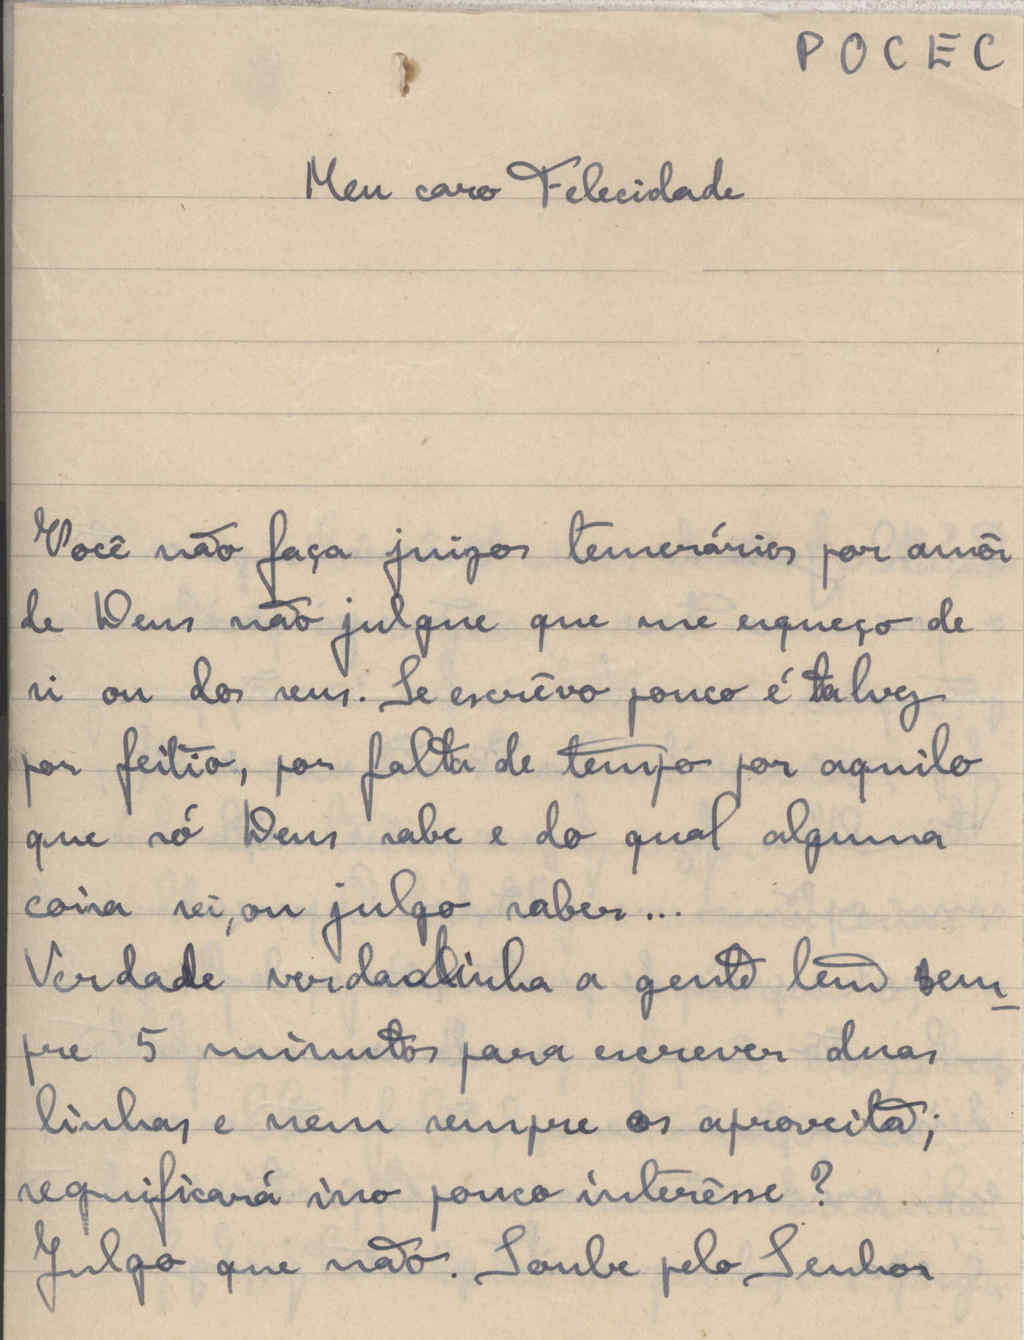 POCEC
Meu caro Felecidade
Você não faça juizos temerários por amôr
de Deus não julgue que me esqueço de
si ou dos seus. Se escrêvo pouco é talvez
por feitio, por falta de tempo por aquilo
que só Deus sabe e do qual alguma
coisa sei, ou julgo saber...
Verdade verdadinha a gente tem sem_
pre 5 minutos para escrever duas
linhas e nem sempre os aproveita;
segnificará isso pouco interêsse?
Julgo que não. Soube pelo Senhor